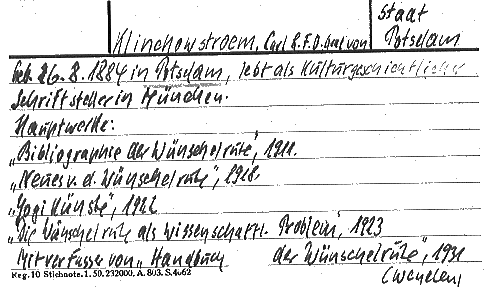 Klinckowstroem, Carl L.F.O. Graf von
Staat
Potsdam
Geb. 26.8.1884 in Potsdam, lebt als Kulturgeschichtlicher
Schriftsteller in München.
Hauptwerke:
„Bibliographie der Wünschelrute", 1911.
„Neues v. d. Wünschelrute", 1918.
„Yogi Künste", 1922
„Die Wünschelrute als wissenschaftl. Problem", 1923
Mitverfasser von „Handbuch der Wünschelrute", 1931
Reg. 10 Stichnote. 1. 50. 232000. A. 803. S. 4662